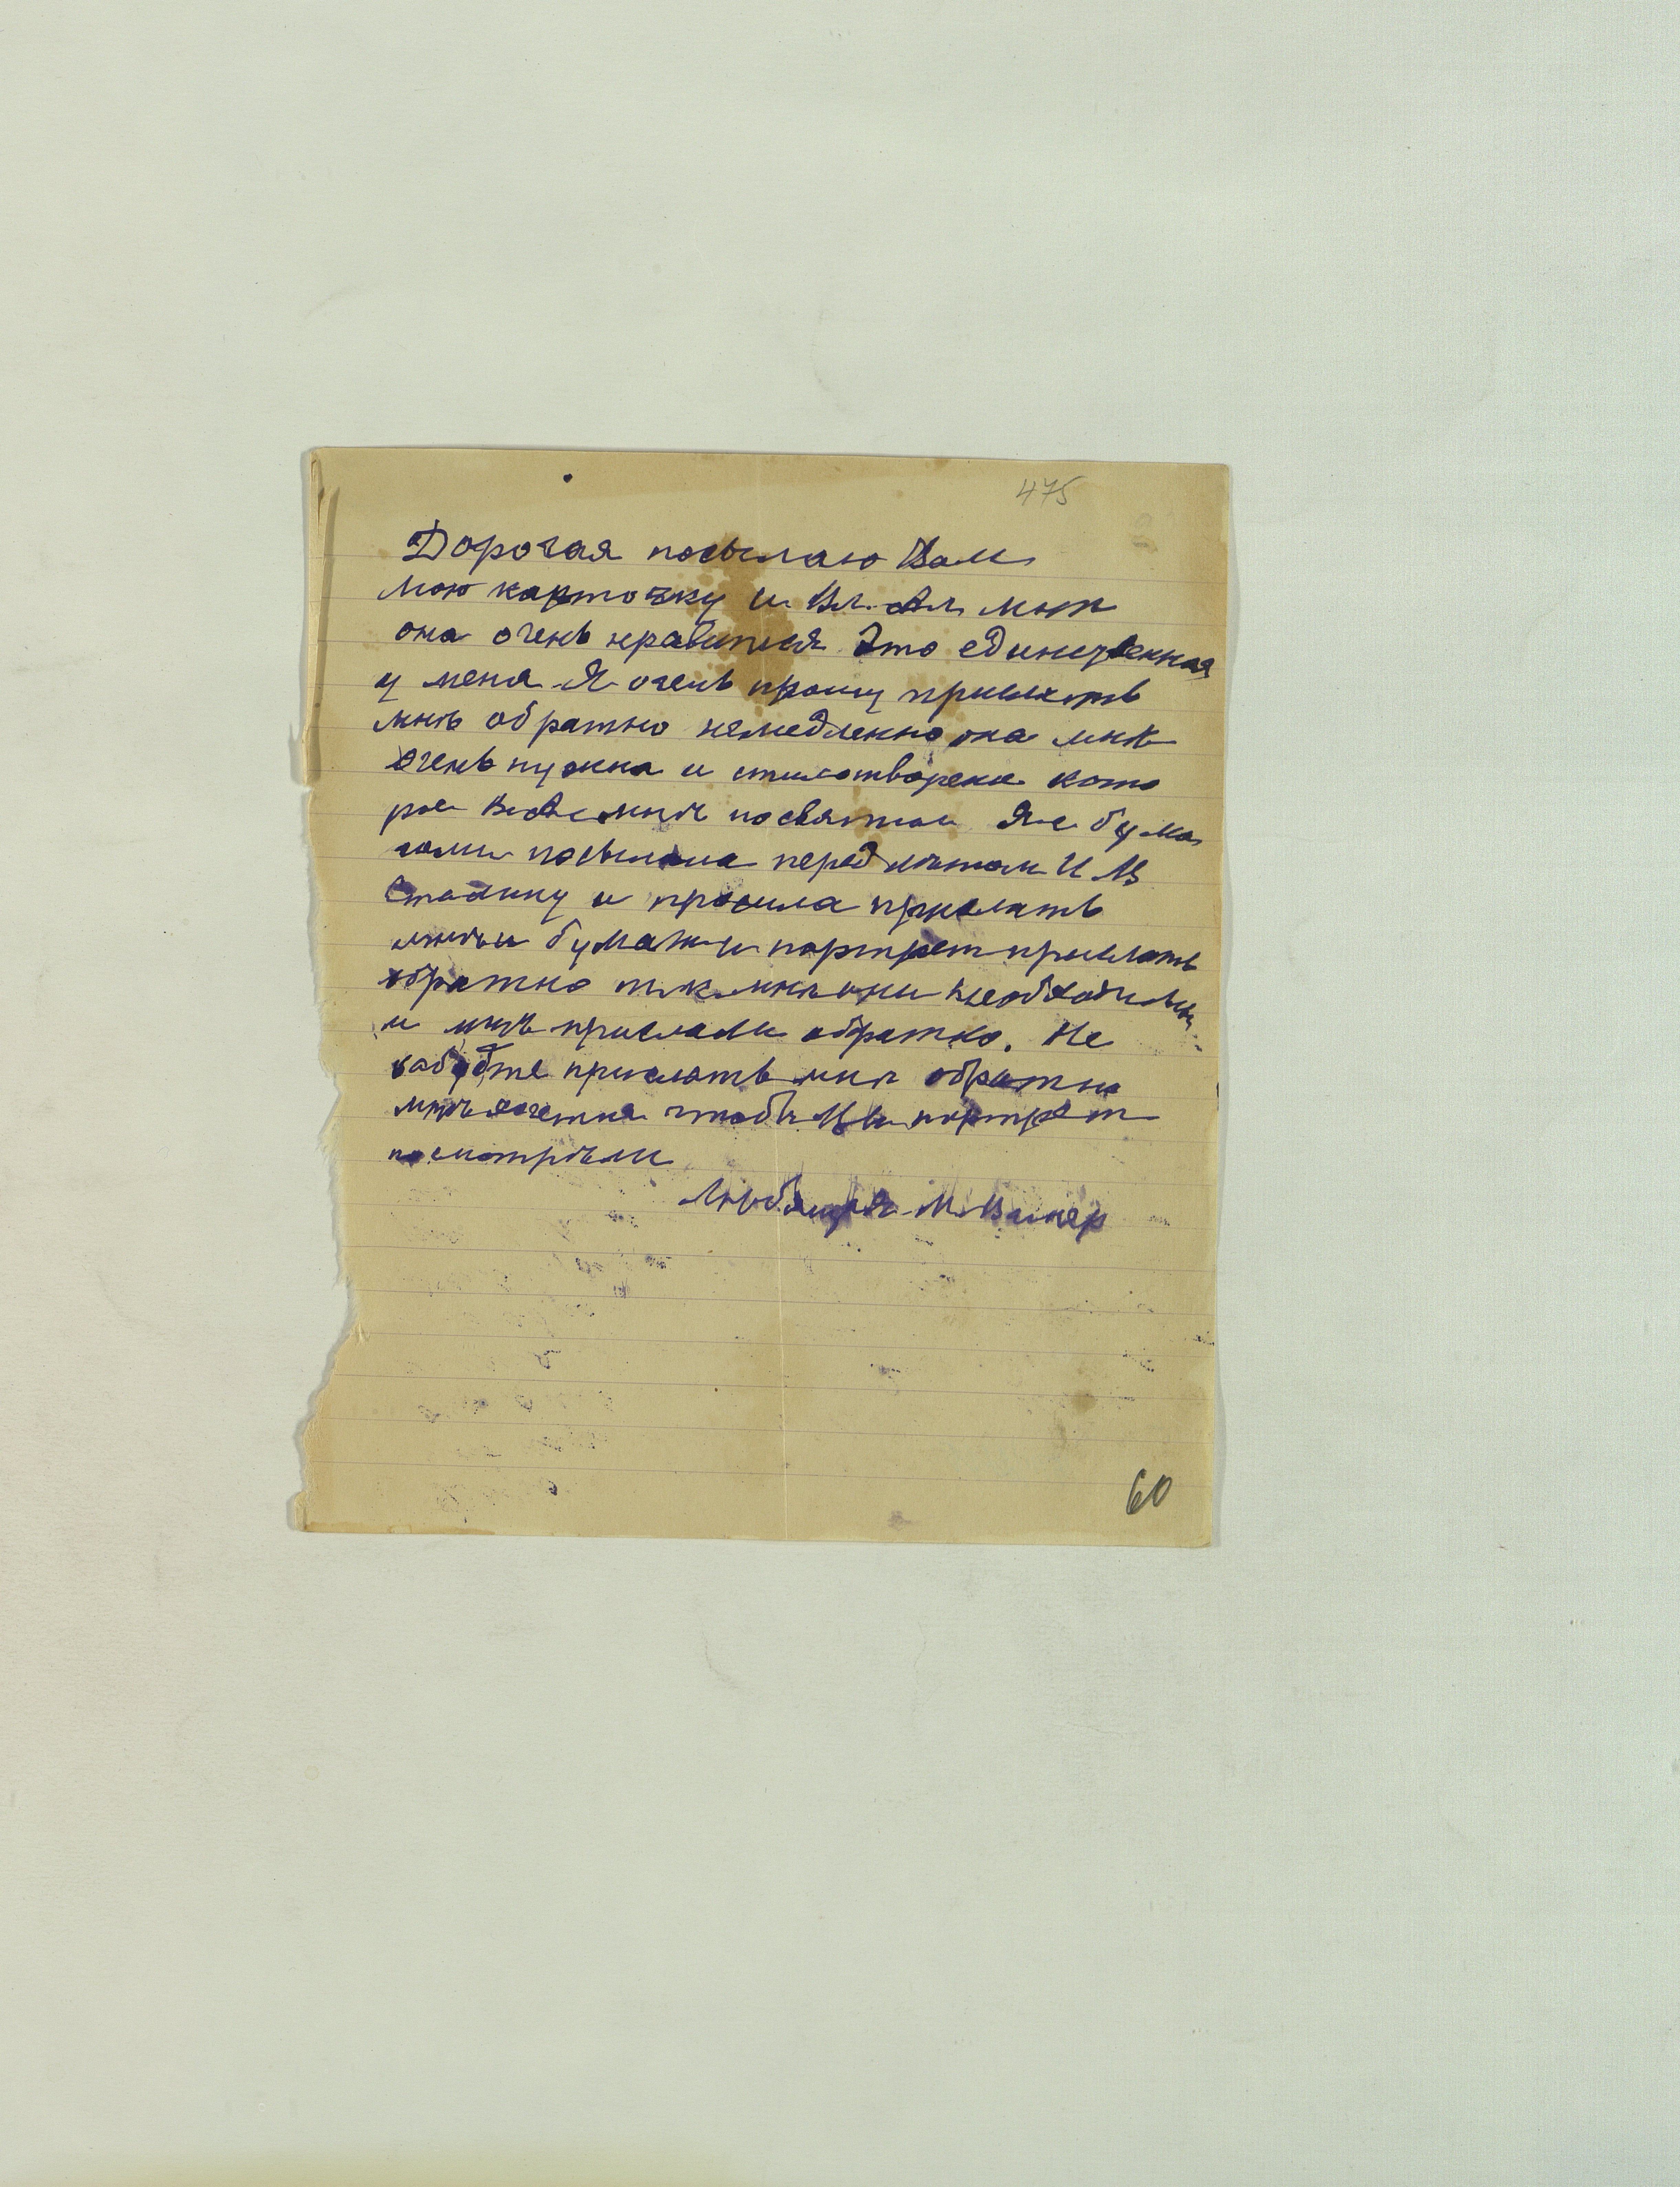 475
Дорогая посылаю Вам
мою карточку и Вл. Ал мнѣ
она очень нравится Это единственная
у меня Я очень прошу прислать
мнѣ обратно немедленно она мнѣ
очень нужна и стихотворение кото
рое мнѣ посвятил Я с бума
гами посылала перед И В
Сталину и просила прислать
мнѣ и бумаги и портрет прислать
обратно т.к. мнѣ они необходимы
и мнѣ прислали обратно. Не
забудте прислать мнѣ обратно
мнѣ хочется чтобы Вы портрет
посмотрѣли
Любящая М. Винер
60